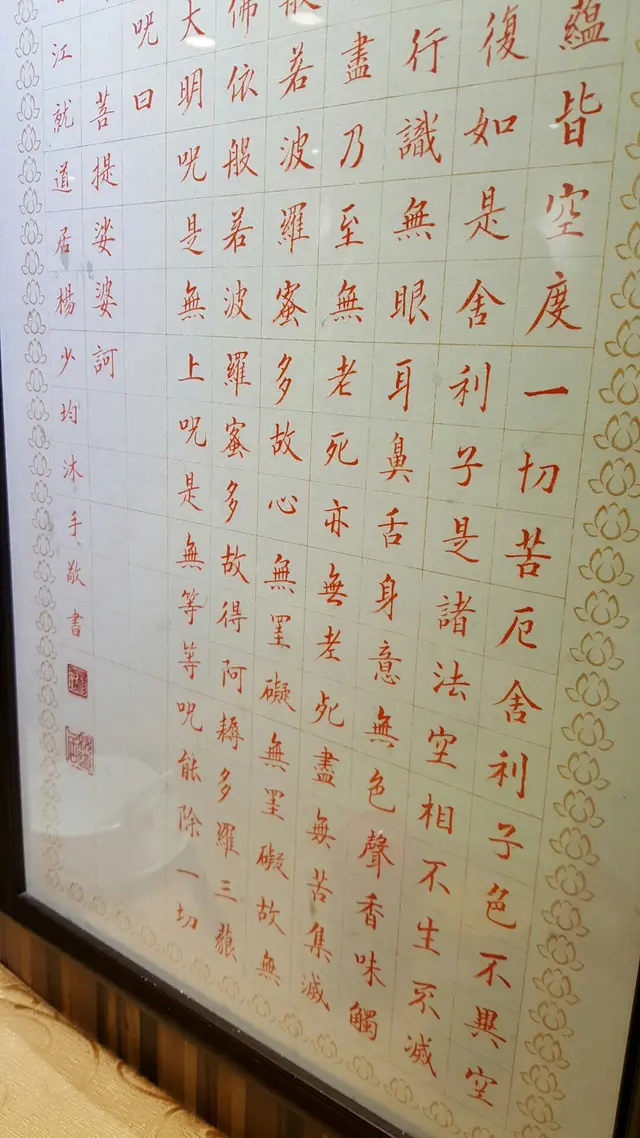 蘊皆空度一切苦厄舍利子色不異空
復如是舍利子是諸法空相不生不滅
行識無眼耳鼻舌身意無色聲香味觸
盡乃至無老死亦無老死盡無苦集滅
若波羅蜜多故心無罣礙無罣礙故無
佛依般若波羅蜜多故得阿耨多羅三藐
大明咒是無上咒是無等等咒能除一切
咒曰
菩提娑婆訶
江就道居楊少均沐手敬書